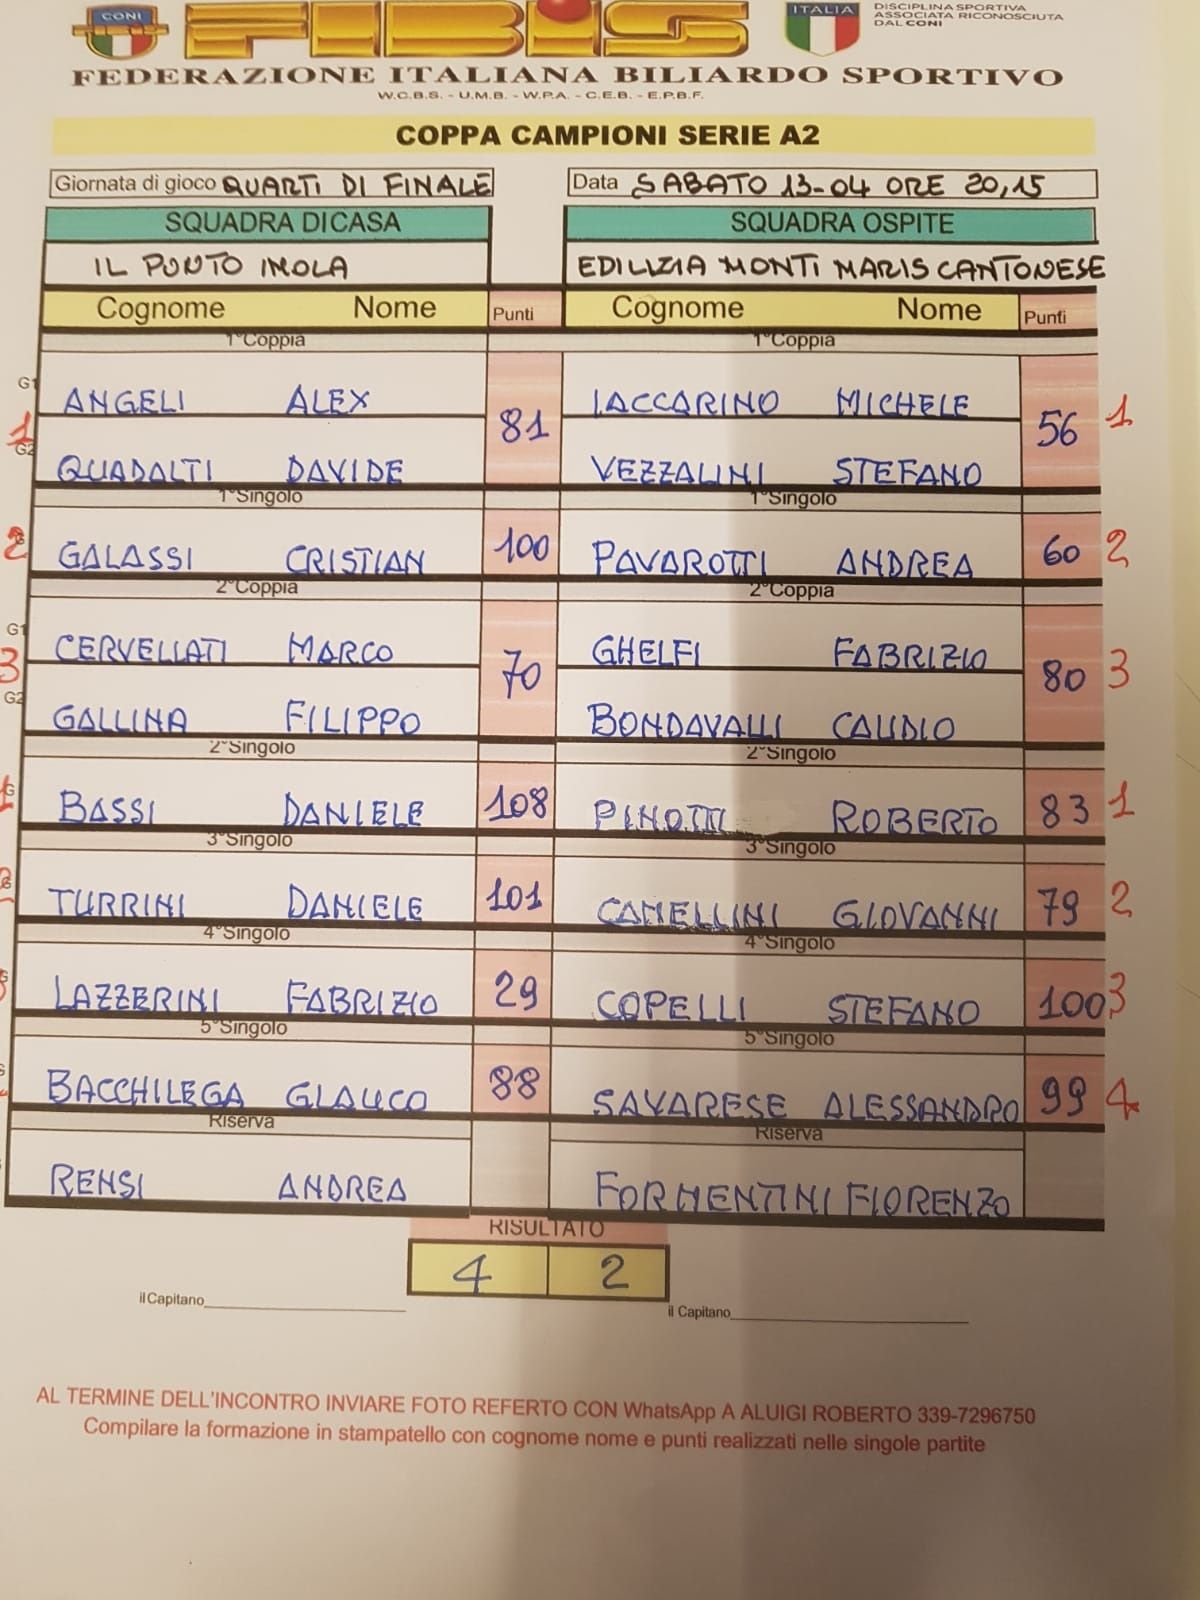 CONI FIBiS ITALIA DISCIPLINA SPORTIVA
ASSOCIATA RICONOSCIUTA
DAL CONI
FEDERAZIONE ITALIANA BILIARDO SPORTIVO
W.C.B.S. - U.M.B. - W.P.A. - C.E.B. - E.P.B.F.
COPPA CAMPIONI SERIE A2
Giornata di gioco QUARTI DI FINALE Data SABATO 13-04 ORE 20,15
SQUADRA DI CASA SQUADRA OSPITE
IL PUNTO IMOLA EDILIZIA MONTI MARIS CANTONESE
Cognome Nome Punti Cognome Nome Punti
1°Coppia 1°Coppia
G1 ANGELI ALEX 81 IACCARINO MICHELE 56 1
1 G2 QUADALTI DAVIDE VEZZALINI STEFANO
1°Singolo 1°Singolo
2 GALASSI CRISTIAN 100 PAVAROTTI ANDREA 60 2
2°Coppia 2°Coppia
G1 CERVELLATI MARCO 70 GHELFI FABRIZIO 80 3
3 G2 GALLINA FILIPPO BONDAVALLI CALUDIO
2°Singolo 2°Singolo
G BASSI DANIELE 108 PINOTTI ROBERTO 83 1
3°Singolo 3°Singolo
G TURRINI DANIELE 101 CAMELLINI GIOVANNI 79 2
4°Singolo 4°Singolo
LAZZERINI FABRIZIO 29 COPELLI STEFANO 100 3
5°Singolo 5°Singolo
BACCHILEGA GLAUCO 88 SAVARESE ALESSANDRO 99 4
Riserva Riserva
RENSI ANDREA FORMENTINI FIORENZO
RISULTATO
4 2
il Capitano il Capitano
AL TERMINE DELL'INCONTRO INVIARE FOTO REFERTO CON WhatsApp A ALUIGI ROBERTO 339-7296750
Compilare la formazione in stampatello con cognome nome e punti realizzati nelle singole partite